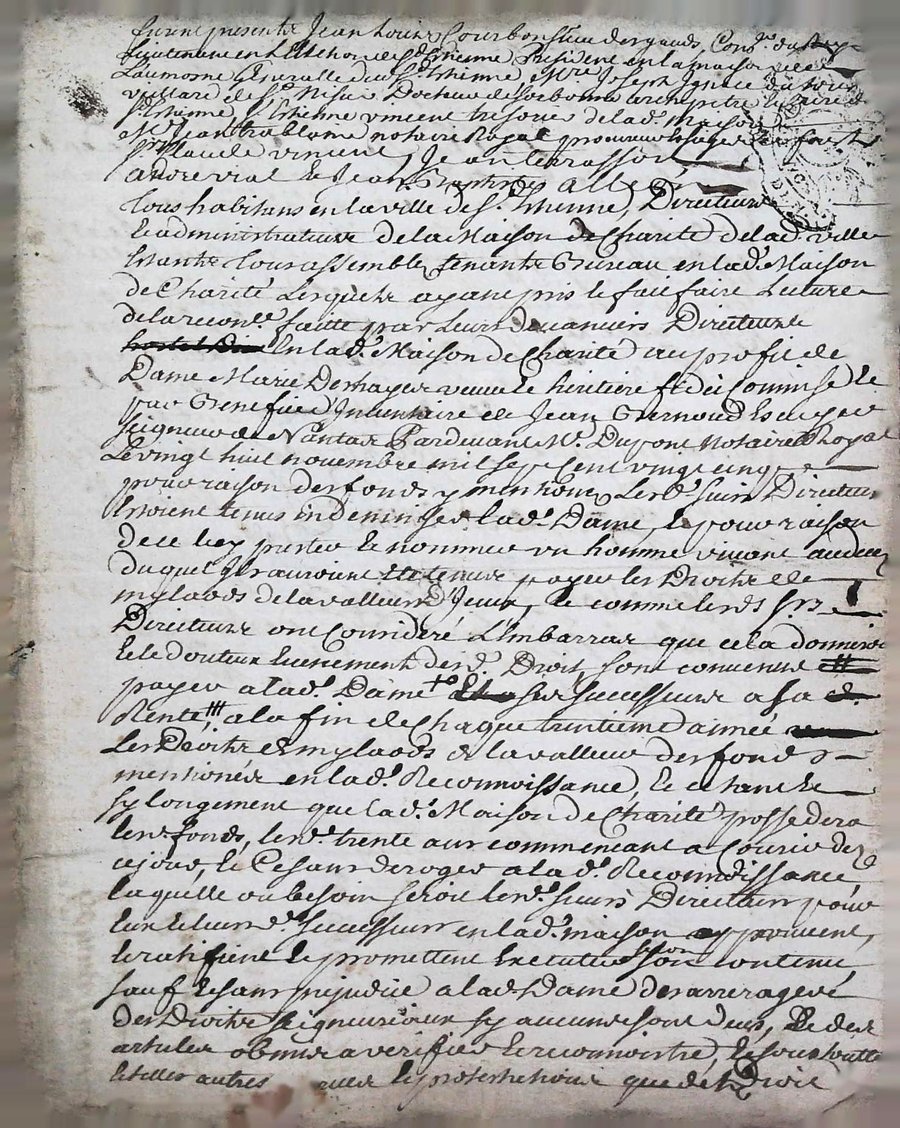 furent presents Jean Louis Courbon sieur des gauds, Con.er du Roy
Lieutenant en L'Election de St Etienne President en la maison de
Laumosne Generalle dud St Ethienne Mre Joseph Ignace
villard de St Nisier Docteur de Sorbonne archiprêtre
St Etienne, Sr Ethienne vincent tresorier de lad. Maison
Mr Jean notaire Royal procureur
Sr Claude vincent, Jean terrasson
andre vial et Jean Baptiste alle
Tous habitans en la ville de St Ethienne, Directeurs
et administrateurs de la Maison de Charité de lad. ville
Estants tous assemblez tenants Bureau en lad. Maison
de Charité Lesquels ayant pris et fait faire Lecture
de la recon.ce faitte par Leurs devanciers Directeurs
En lad. Maison de Charité au profit de
Dame Marie Deshayes veuve et heritiere fideicommise et
par Benefice d'Inventaire de Jean Bernoud Escuyer
seigneur de Nantas Pardevant Mr. Dupont Notaire Royal
Le vingt huit novembre mil sept cent vingt cinq
pour raison des fonds y mentionez Lesd. sieurs Directeurs
Estoient tenus indemniser lad. Dame, et pour raison
de ce luy prester et nommer un homme vivant au decez
duquel ils auroient été tenus payer les Droits de
mylaods de la valleur d'Iceux, et comme lesds srs
Directeurs ont Consideré L'Embarras que cela donneroit
Et le douteux Evenement desd. Droits sont convenus
payer a lad. Dame ses successeurs a sa
Rente, a la fin de Chaque trentieme année
Les Droits de mylaods de la valleur des fonds
mentionés en lad. Reconnoissance, Et ce tant et
sy longement que lad. Maison de Charité possedera
lesds fonds, lesd. trente ans commencant a Courir dez
ce jour, et Ce sans deroger a lad. Reconnoissance
laquelle au besoin seroit lesd. sieurs Directeurs pour
Eux et leurs d. successeurs en lad. maison approuvent,
et ratifient et promettent Executer selon son contenu
sauf et sans prejudice a lad. Dame des arrerages
des Droits seigneuriaux sy aucuns sont deus, Et des
articles obmis a verifier et reconnoistre, et sous toutte
Et telles autres et protestations que de Droit